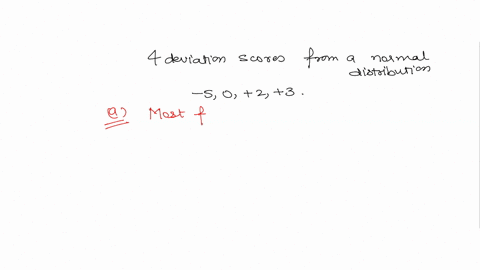 4 deviation scores from a normal
distribution
-5, 0, +2, +3.
a) Most f